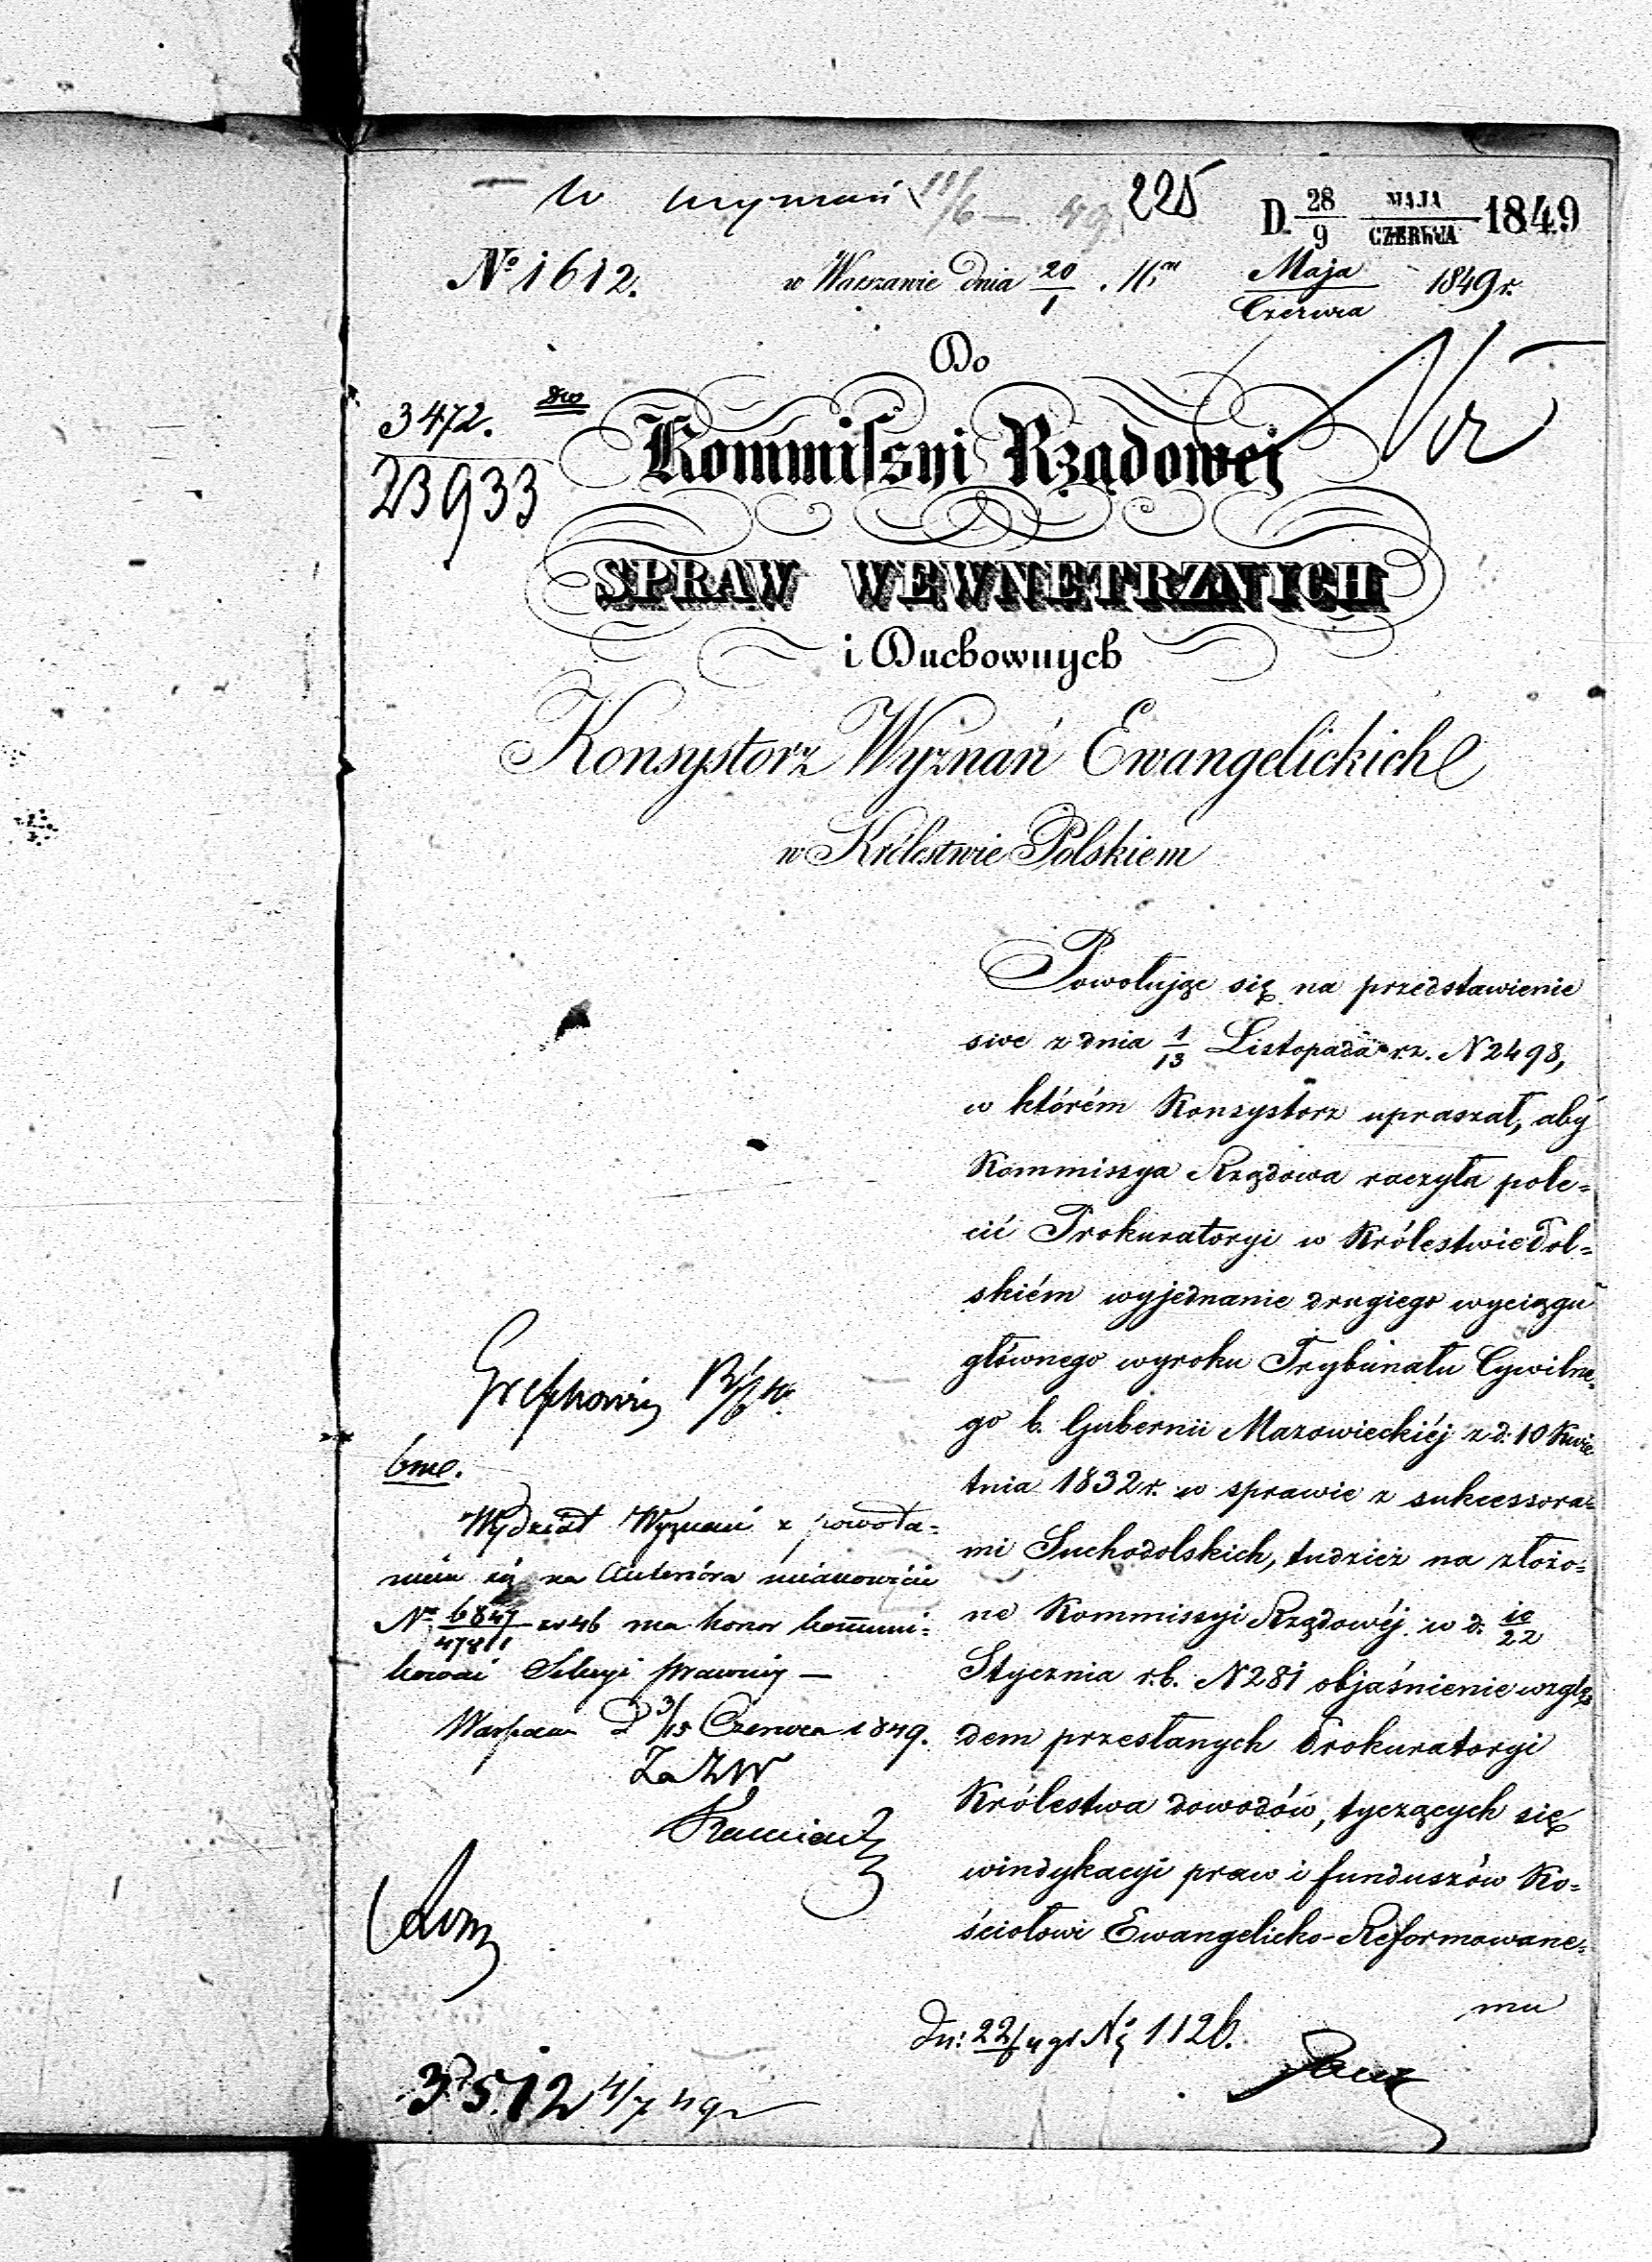 W wyznań 11/6 49 225
D. 28/9 MAJA/CZERWCA 1849
No 1612. w Warszawie dnia 20/1 Maja/Czerwca 1849 r.
Do
3472.
23933
Kommissyi Rządowej
SPRAW WEWNĘTRZNYCH
i Duchownych
Konsystorz Wyznań Ewangelickich
w Królestwie Polskiém
Powołując się na przedstawienie
swe z dnia 1/13 Listopada r.z. N 2498,
w którém Konsystorz upraszał, aby
Kommissya Rządowa raczyła pole=
cić Prokuratoryi w Królestwie Pol=
skiém wyjednanie drugiego wyciągu
głównego wyroku Trybunału Cywilne=
go b. Gubernii Mazowieckiéj z d. 10 Kwie
tnia 1832 r. w sprawie z sukcessora=
mi Suchodolskich, tudzież na złożo=
ne Kommissyi Rządowéj w d. 10/22
Stycznia r.b. N 281 objaśnienie wzglę
dem przesłanych Prokuratoryi
Królestwa dowodów, tyczących się
windykacyi praw i funduszów Ko=
ściołowi Ewangelicko-Reformowane=
mu
Wydział Wyznań z powoła=
niem się na Anteriora mianowicie
No 6847/47811 z 46 ma honor kommuni=
kować Sekcyi Prawnéj —
Warszawa D 3/15 Czerwca 1849.
Za
No 1126.
3512 4/7 49